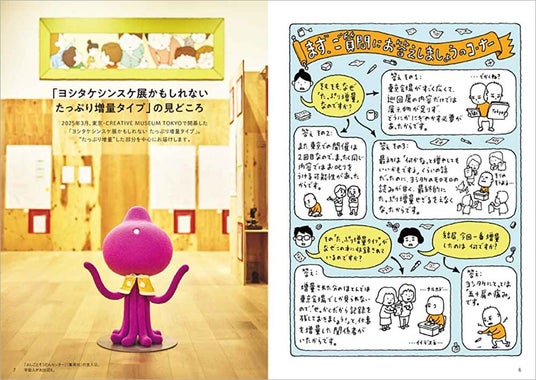 「ヨシタケシンスケ展かもしれない
たっぷり増量タイプ」の見どころ
2025年3月、東京・CREATIVE MUSEUM TOKYOで開幕した
「ヨシタケシンスケ展かもしれない たっぷり増量タイプ」。
“たっぷり増量”した部分を中心にお届けします。
7
まず、ご質問にお答えしましょうのコーナー
そもそも、なぜ
「たっぷり増量」
なのですか?
答え その1:
東京会場がすごく広くて、
巡回展の内容だけでは
展示物が足りず、
どうにかにぎやかす必要が
あったからです。
答え その2:
また東京での開催は
2回目なので、まったく同じ
内容ではお叱りを
うける可能性があった
からです。
答え その3:
最初は「何かをちょっと増やしても
いいかもですよ」くらいの話
だったのに、ヨシタケのモロモロの
読みが甘く、最終的に
たっぷり増量せざるをえなく
なったからです。
その「たっぷり増量タイプ」が、
なぜこの本に収録されて
いるのですか?
結局、今回一番増量
したのは何ですか?
答え:
増量された分のほとんどは
東京会場でしか見られない
ので、「せっかくだから記録を
残しておきましょう」と、仕事
を増量した関係者が
いたからです。
答え:
ヨシタケにとっては
「五十肩の痛み」
です。
6